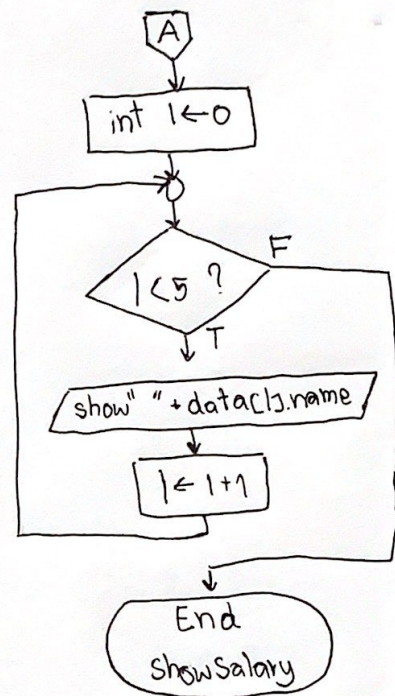 A
int l←0
l<5 ?
F
T
show" "+data[l].name
l←l+1
End
showSalary